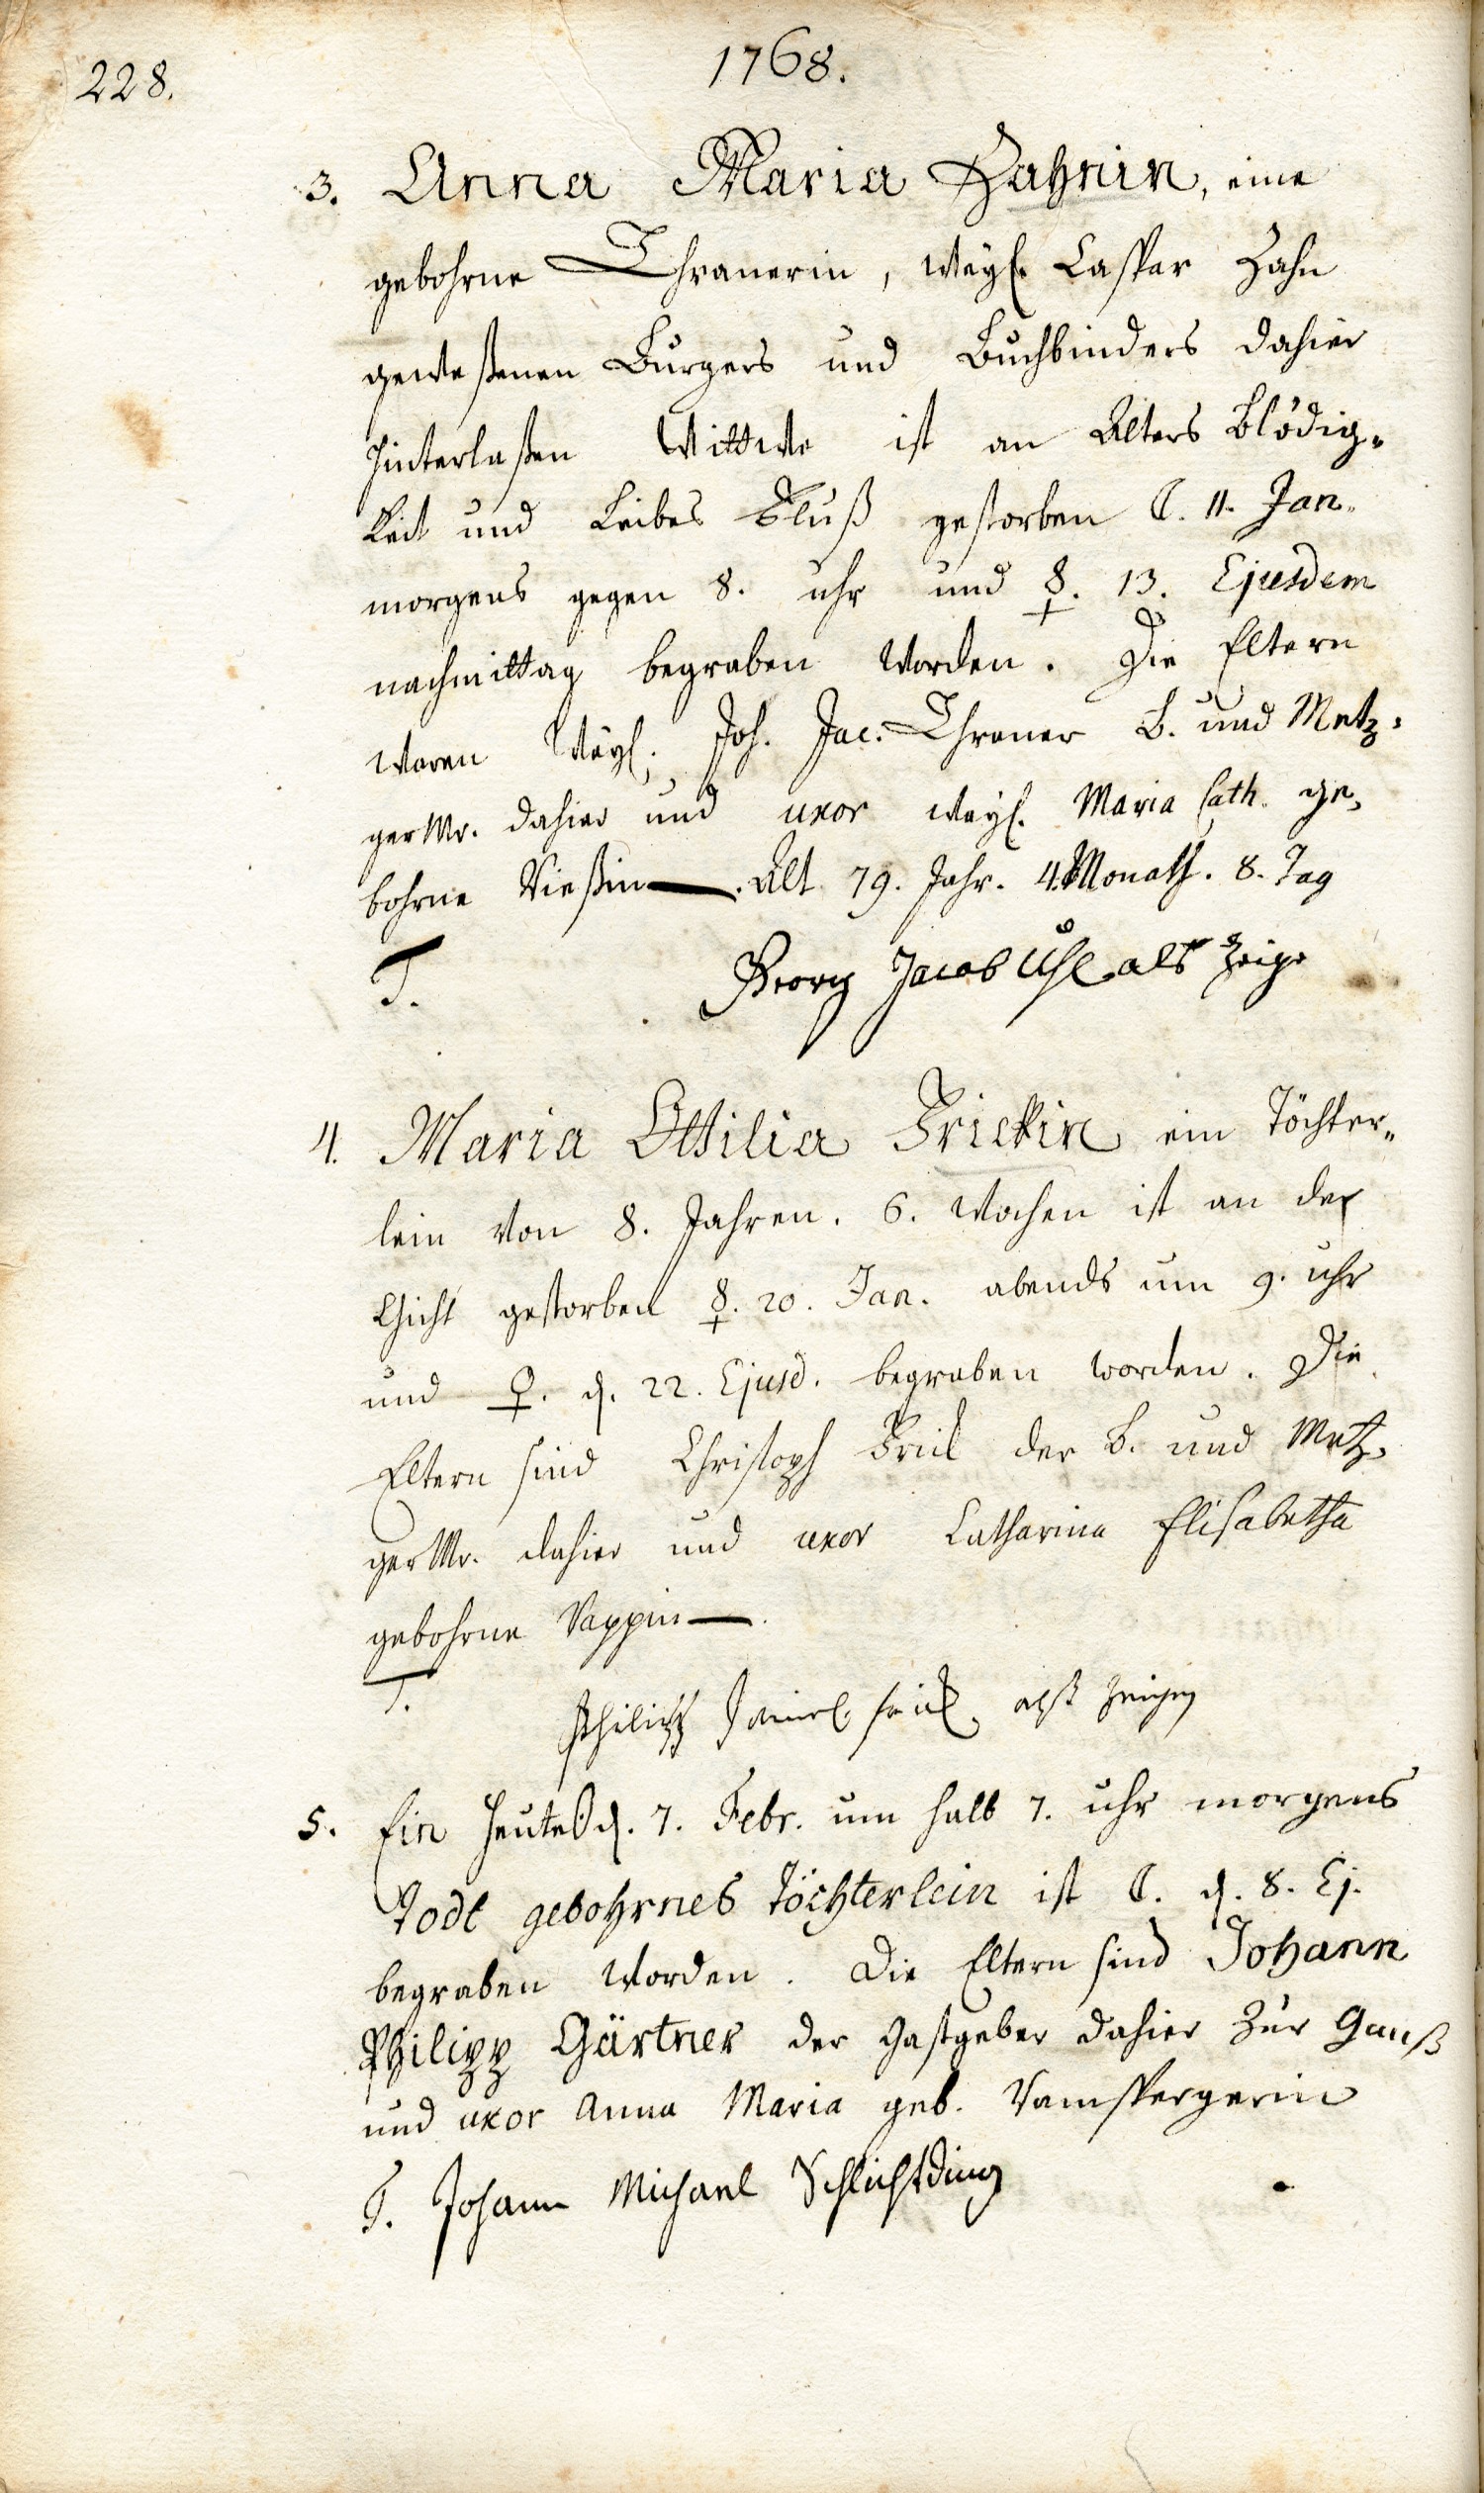 228.
1768.
3. Anna Maria Zahnin, eine
gebohrne Thranerin, weyl. Caspar Zahn
geweßenen Burgers und Buchbinders dahier
hinterlaßen Wittwe ist an Alters Blödig-
keit und Leibes Fluß gestorben ☾. 11. Jan.
morgens gegen 8. uhr und ☿. 13. Ejusdem
nachmittag begraben worden. Die Eltern
waren weyl. Joh. Jac. Thraner B. und Metz-
ger Mr. dahier und uxor weyl. Maria Cath. ge-
bohrne . Alt 79. Jahr. 4. Monath. 8. Tag
T. Georg Jacob Uhl als Zeige
4. Maria Ottilia Frickin ein Töchter-
lein von 8. Jahren. 6. Wochen ist an der
Gicht gestorben ☿. 20. Jan. abends um 9. uhr
und ♀. d. 22. Ejusd. begraben worden. Die
Eltern sind Christoph Frick der B. und Metz-
ger Mr. dahier und uxor Catharina Elisabetha
gebohrne Vappin.
T. Philipp Daniel frick alß zeigen
5. Ein heute ☉ d. 7. Febr. um halb 7. uhr morgens
todt gebohrnes Töchterlein ist ☾. d. 8. Ej.
begraben worden. Die Eltern sind Johann
Philipp Gärtner der Gastgeber dahier zur Ganß
und uxor Anna Maria geb.
T. Johann Michael Schlichtding